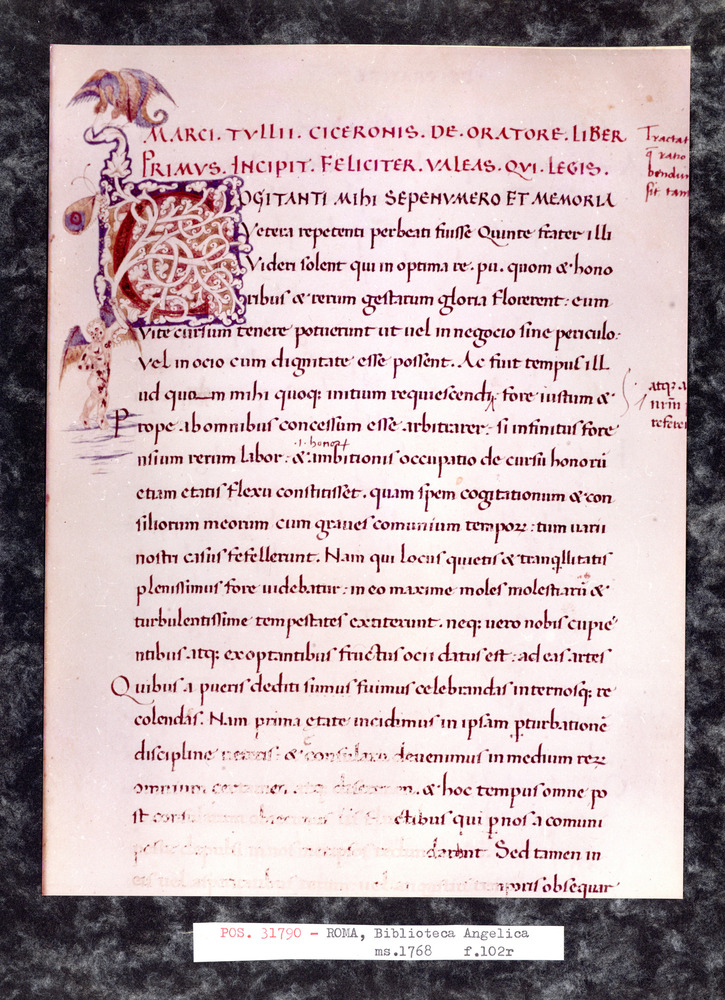 MARCI. TVLLII. CICERONIS. DE. ORATORE. LIBER
PRIMVS. INCIPIT. FELICITER. VALEAS. QVI. LEGIS.
COGITANTI MIhI SEPENVMERO ET MEMORIA
Vetera repetenti perbeati fuisse Quinte frater illi
Videri solent qui in optima re. pu. quom & hono
ribus & rerum gestarum gloria florerent: eum
vite cursum tenere potuerunt ut uel in negocio sine periculo:
Vel in ocio cum dignitate esse possent. Ac fuit tempus ill
ud quom mihi quoq: initium requiescendi fore iustum &
Prope ab omnibus concessum esse arbitrarer: si infinitus fore
.i. honor
nsium rerum labor: & ambitionis occupatio de cursu honorū
etiam etatis flexu constitisset. quam spem cogitationum & con
siliorum meorum cum graues comunium tempoꝝ: tum uarii
nostri casus fefellerunt. Nam qui locus quietis & tranqllitatis
plenissimus fore uidebatur: in eo maxime moles molestiarū &
turbulentissime tempestates extiterunt. neq: uero nobis cupie
ntibus atq: exoptantibus fructus ocii datus est: ad eas artes
Quibus a pueris dediti sumus fuimus celebrandas internosq: re
colendas. Nam prima etate incidimus in ipsam ꝑturbationē
discipline & consulatu deuenimus in medium reꝝ
omnium & hoc tempus omne po
st ctibus qui ꝑ nos a comuni
Sed tamen in
obsequar
Tractat
ratio
sit tam
atq: a
POS. 31790 - ROMA, Biblioteca Angelica
ms.1768 f.102r